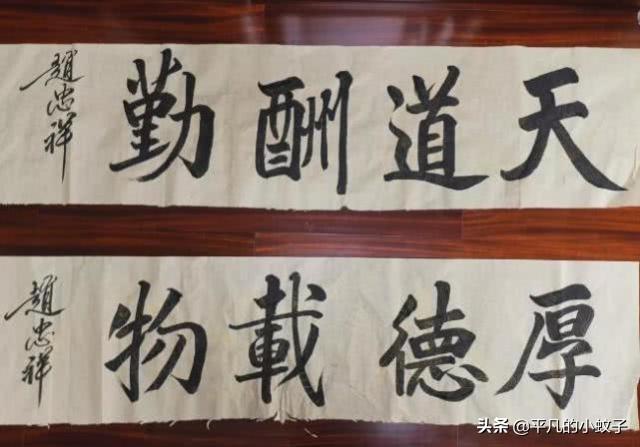 天道酬勤
趙忠祥
厚德載物
趙忠祥
头条 @平凡的小蚊子